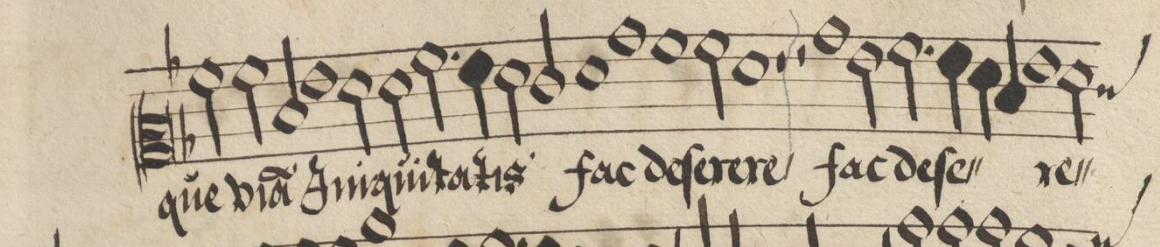 que viā Iniquitatis fac deserere fac dese re